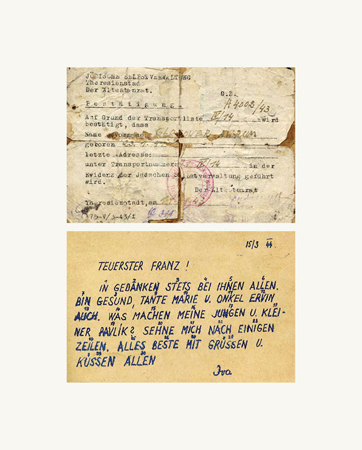 JÜDISCHE SELBSTVERWALTUNG
Theresienstadt
Der Ältestenrat.
G.Z.
A 4002/43
Bestätigung.
Auf Grund der Transportliste wird
bestätigt, dass
Name
geboren
letzte Adresse:
unter Transportnummer in der
Evidenz der Jüdischen Selbstverwaltung geführt
wird.
Der Ältestenrat
Theresienstadt, am
15/3 44.
TEUERSTER FRANZ !
IN GEDÄNKEN STETS BEI IHNEN ALLEN.
BIN GESUND, TANTE MARIE U. ONKEL ERVIN
AUCH. WAS MACHEN MEINE JUNGEN U. KLEI-
NER PAVLÍK? SEHNE MICH NACH EINIGEN
ZEILEN. ALLES BESTE MIT GRÜSSEN U.
KÜSSEN ALLEN
Iva